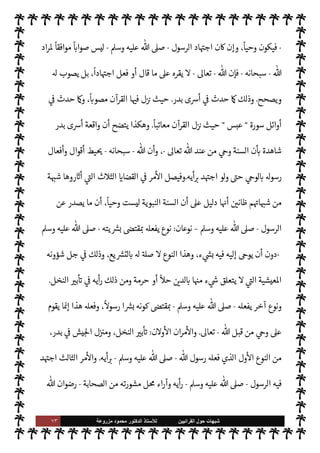 - فيكون وحياً، وإن كان اجتهاد الرسول - صلى الله عليه وسلم - ليس صواباً موافقاً لمراد
الله - سبحانه - فإن الله - تعالى - لا يقره على ما قال أو فعل اجتهاداً، بل يصوب له
ويصحح. وذلك كما حدث في أسرى بدر. حيث نزل فيها القرآن مصوباً، وكما حدث في
أوائل سورة " عبس " حيث نزل القرآن معاتباً. وهكذا يتضح أن واقعة أسرى بدر
شاهدة بأن السنة وحي من عند الله تعالى -، وأن الله - سبحانه - يحيط أقوال وأفعال
رسوله بالوحي حتى ولو اجتهد برأيه.وفيصل الأمر في القضايا الثلاث التي أثاروها شبهة
من شبهاتهم ظانين أنها دليل على أن السنة النبوية ليست وحياً، أن ما يصدر عن
الرسول - صلى الله عليه وسلم - نوعان: نوع يفعله بمقتضى بشريته - صلى الله عليه وسلم
-دون أن يوحى إليه فيه بشيء، وهذا النوع لا صلة له بالتشريع، وذلك في جل شؤونه
المعيشية التي لا يتعلق شيء منها بالدين حلاً أو حرمة ومن ذلك رأيه في تأبير النخل.
ونوع آخر يفعله - صلى الله عليه وسلم - بمقتضى كونه بشرا رسولاً، وفعله هذا إنما يقوم
على وحي من قبل الله - تعالى. والأمران الأولان: تأبير النخل، ومنزل الجيش في بدر،
من النوع الأول الذي فعله رسول الله - صلى الله عليه وسلم - برأيه. والأمر الثالث اجتهد
فيه الرسول - صلى الله عليه وسلم - رأيه وآراء محل مشورته من الصحابة - رضوان الله
شبهات حول القرآنيين للأستاذ الدكتور محمود مزروعة ٧٣